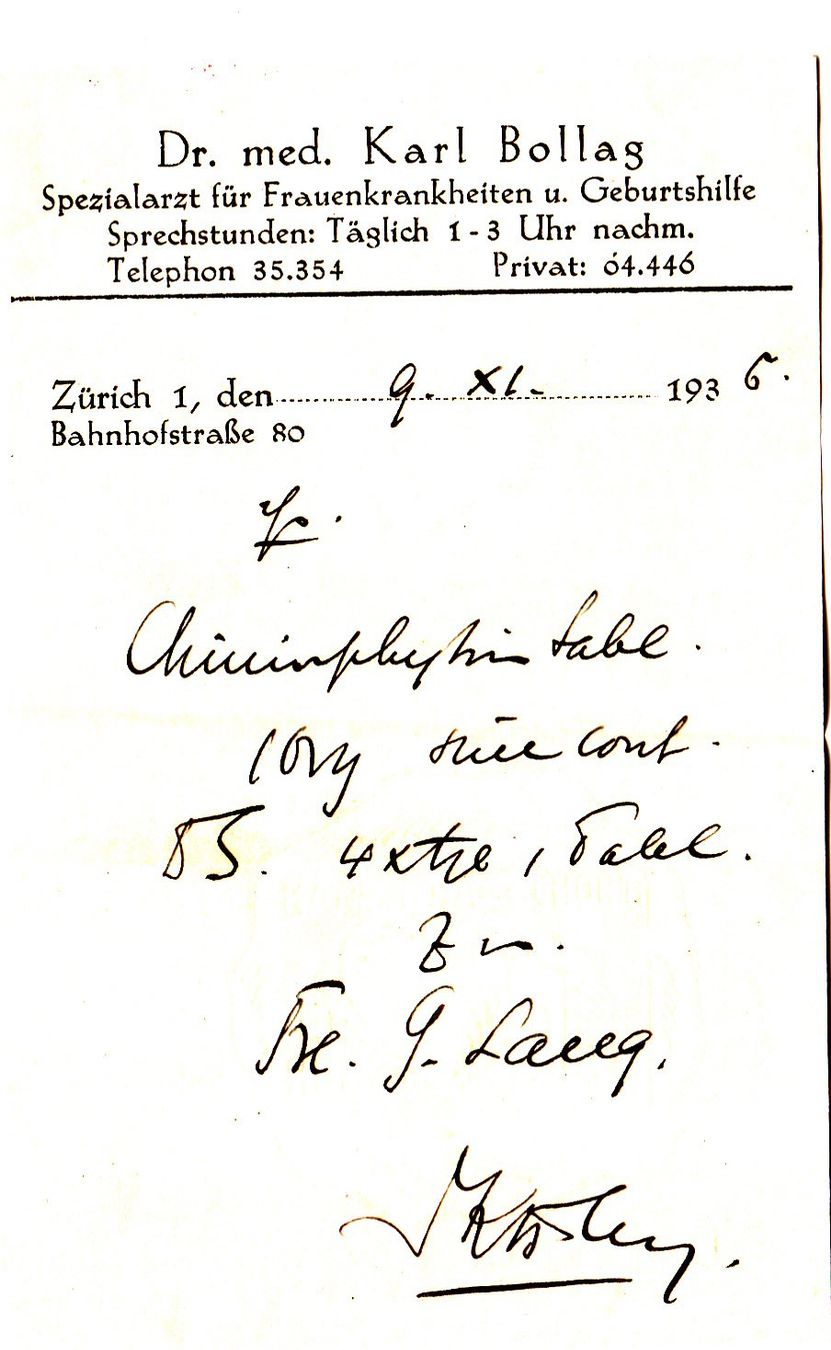 Dr. med. Karl Bollag
Spezialarzt für Frauenkrankheiten u. Geburtshilfe
Sprechstunden: Täglich 1-3 Uhr nachm.
Telephon 35.354 Privat: 64.446
Zürich 1, den 9. XI. 1936.
Bahnhofstraße 80
Chininphytin Tabl.
DS. 4xtgl 1 Tabl.
Frl. G. Lang.